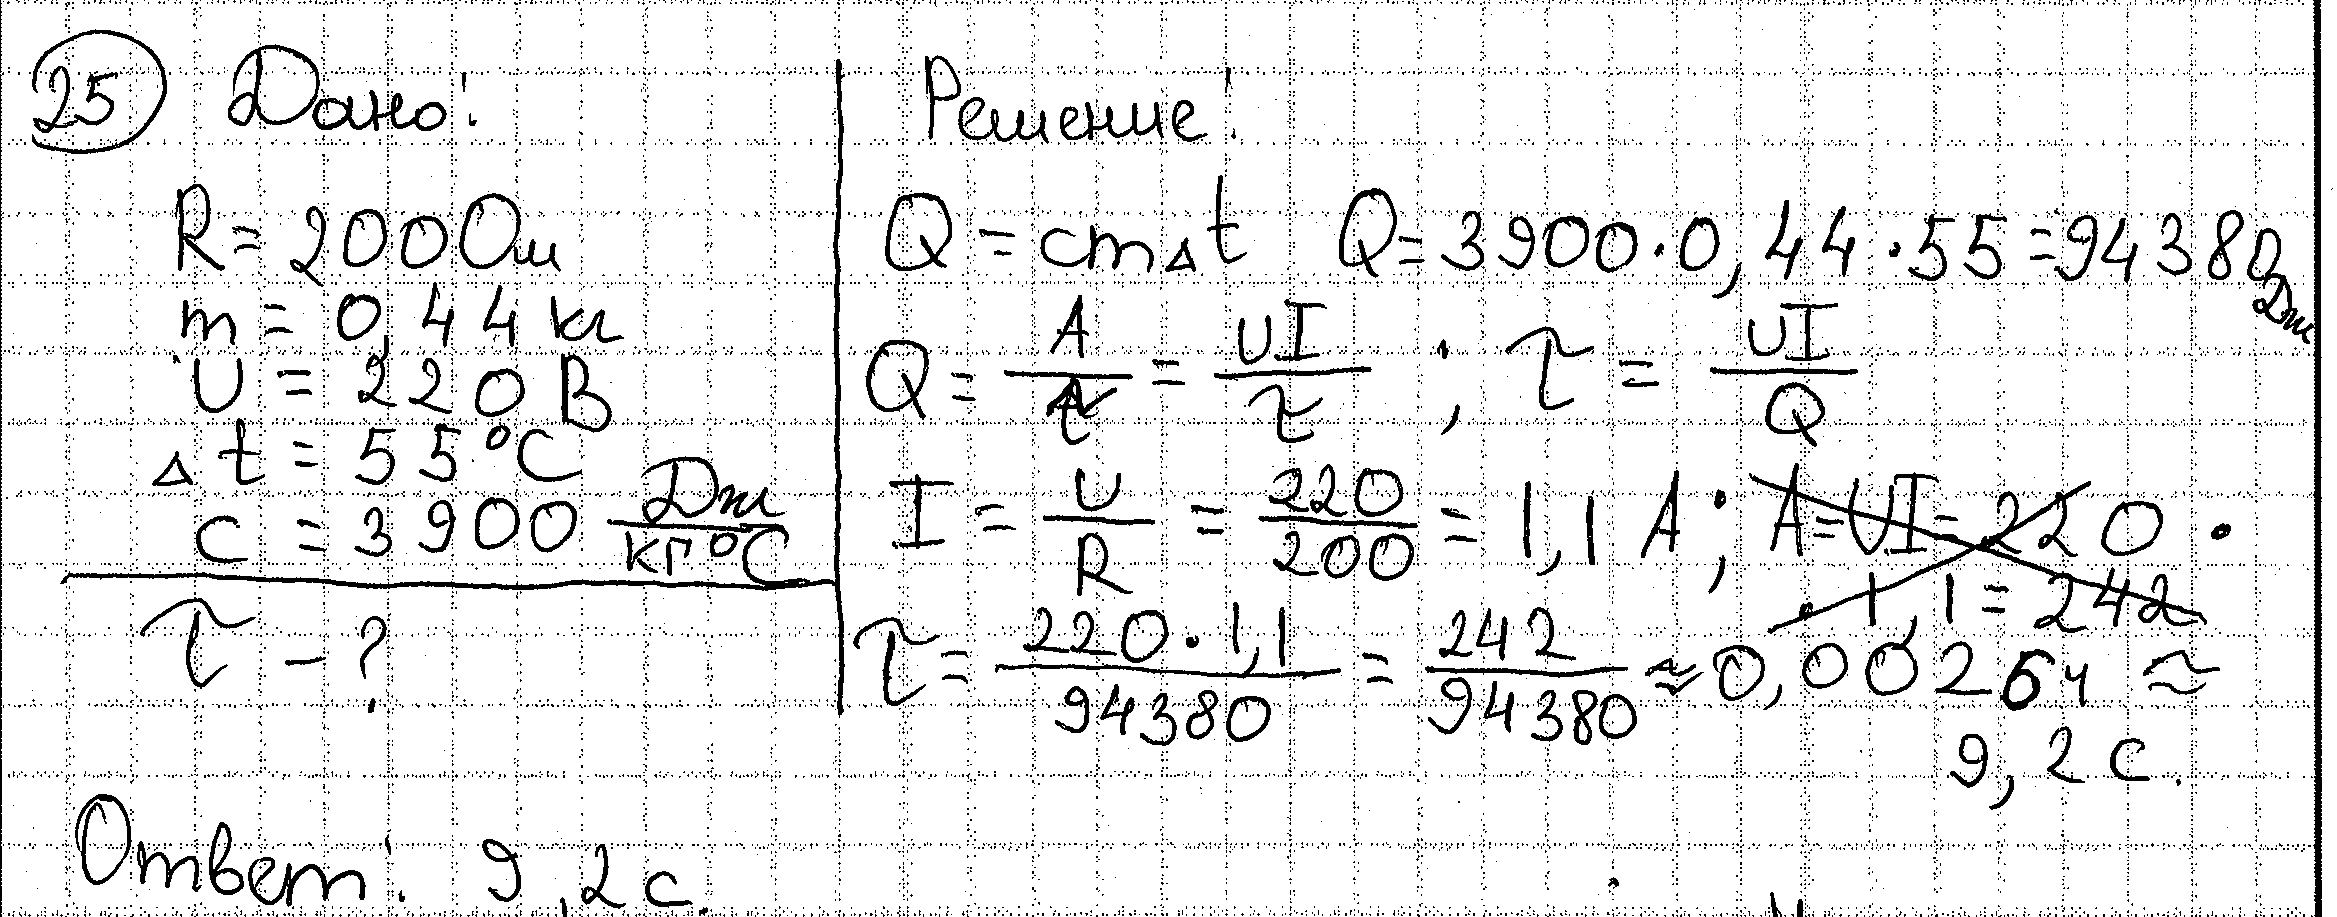 25 Дано:
R = 200 Ом
m = 0,44 кг
U = 220 В
Δt = 55 °C
c = 3900 Дж/кг°C
τ – ?
Решение:
Q = cmΔt Q = 3900 · 0,44 · 55 = 94380 Дж
Q = A/τ = UI/τ ; τ = UI/Q
I = U/R = 220/200 = 1,1 A ; A = UI = 220 ·
· 1,1 = 242
τ = 220 · 1,1/94380 = 242/94380 ≈ 0,0026 ч ≈
9,2 с.
Ответ: 9,2 с.